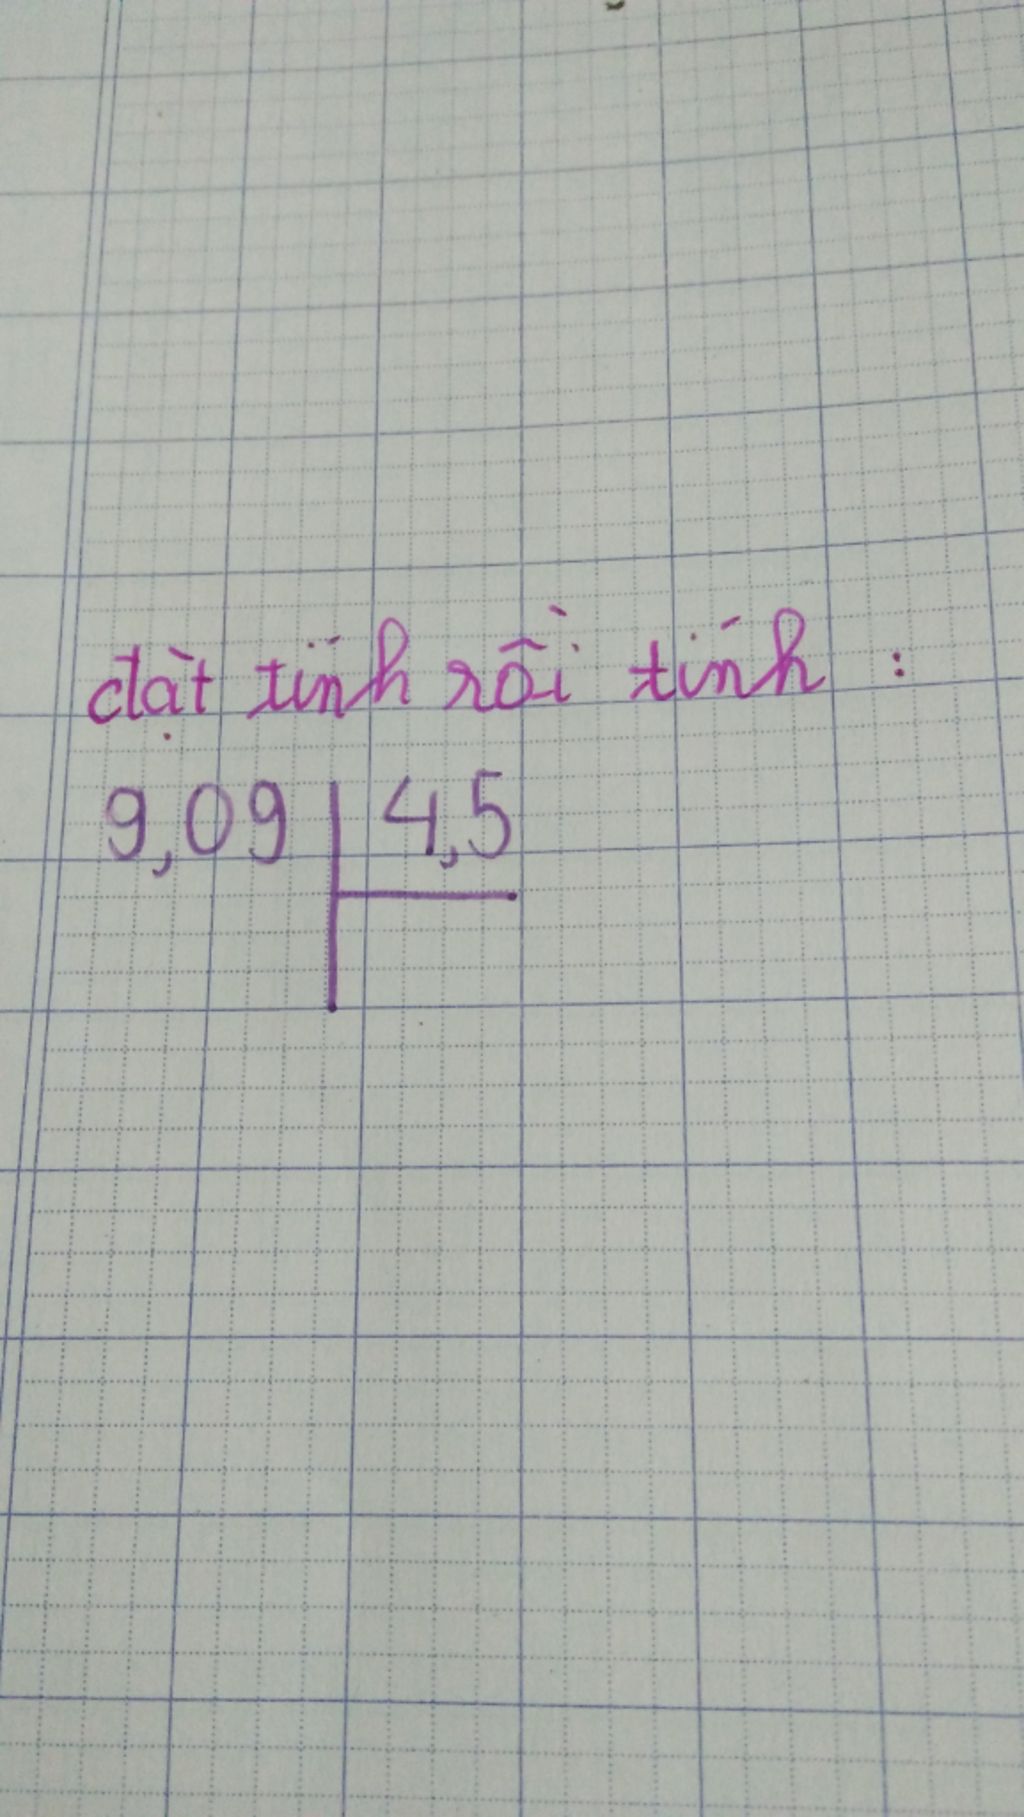 đặt tính rồi tính :
9,09 | 4,5